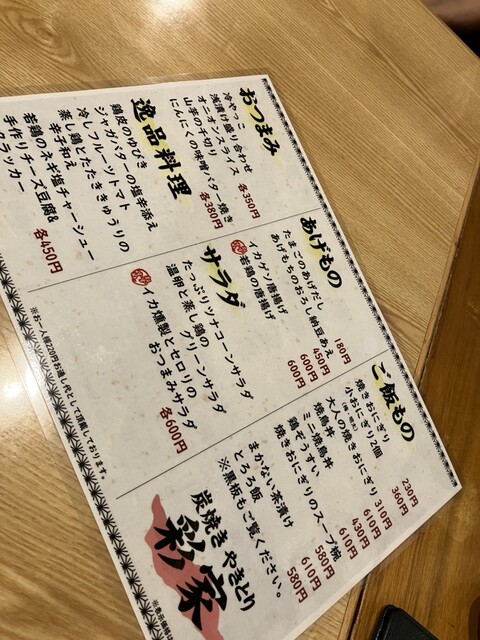 おつまみ
冷やっこ
浅漬け盛り合わせ
オニオンスライス
各350円
山芋の千切り
にんにくの味噌バター焼き
各380円
逸品料理
鶏皮のゆびき
ジャガバターの塩辛添え
冷しフルーツトマト
蒸し鶏とたたききゅうりの
辛子和え
若鶏のネギ塩チャーシュー
手作りチーズ豆腐&
クラッカー
各450円
あげもの
たまごのあげだし
180円
あげもちのおろし納豆あえ
450円
イカゲソ唐揚げ
600円
若鶏の唐揚げ
600円
サラダ
たっぷりツナコーンサラダ
温卵と蒸し鶏の
グリーンサラダ
イカ燻製とセロリの
おつまみサラダ
各600円
ご飯もの
焼きおにぎり
230円
小おにぎり2個
360円
大人の焼きおにぎり
310円
焼鳥丼
610円
ミニ焼鳥丼
430円
鶏ぞうすい
610円
焼きおにぎりのスープ椀
580円
まかない茶漬け
610円
とろろ飯
580円
※黒板もご覧ください。
炭焼き やきとり
彩家
※お一人様220円お通し代として頂戴しております。